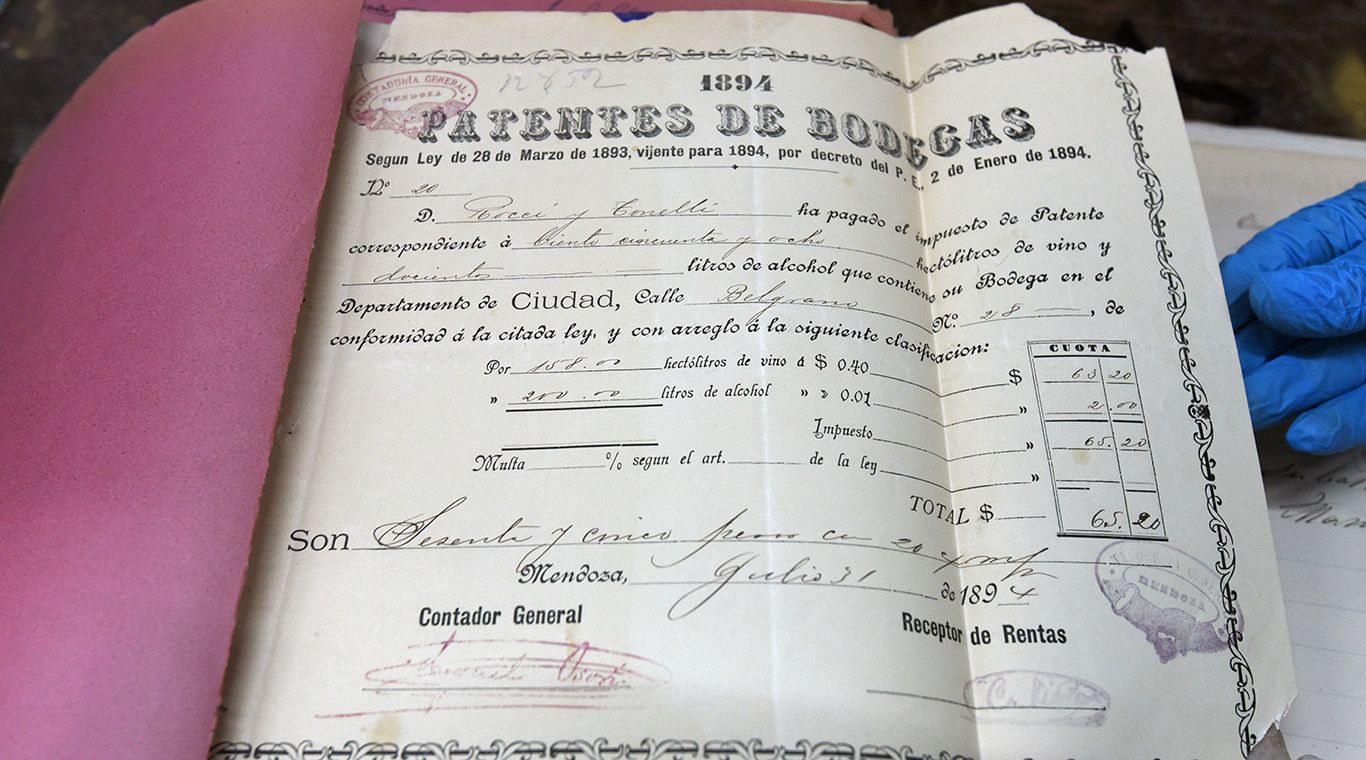 CONTADURÍA GENERAL
MENDOZA
1894
PATENTES DE BODEGAS
Segun Ley de 28 de Marzo de 1893, vijente para 1894, por decreto del P. E. 2 de Enero de 1894.
Nº 20
D. Rocci y Tonelli ha pagado el impuesto de Patente
correspondiente á Ciento cincuenta y ocho hectólitros de vino y
docientos litros de alcohol que contiene su Bodega en el
Departamento de Ciudad, Calle Belgrano Nº. 28, de
conformidad á la citada ley, y con arreglo á la siguiente clasificacion:
CUOTA
Por 158.00 hectólitros de vino á $ 0.40 $ 63 20
» 200.00 litros de alcohol » » 0.01 » 2.00
Impuesto » 65.20
Multa % segun el art. de la ley »
TOTAL $ 65.20
Son Sesenta y cinco pesos con 20
Mendoza, Julio 31 de 1894
TESORERIA GENERAL
MENDOZA
Contador General Receptor de Rentas